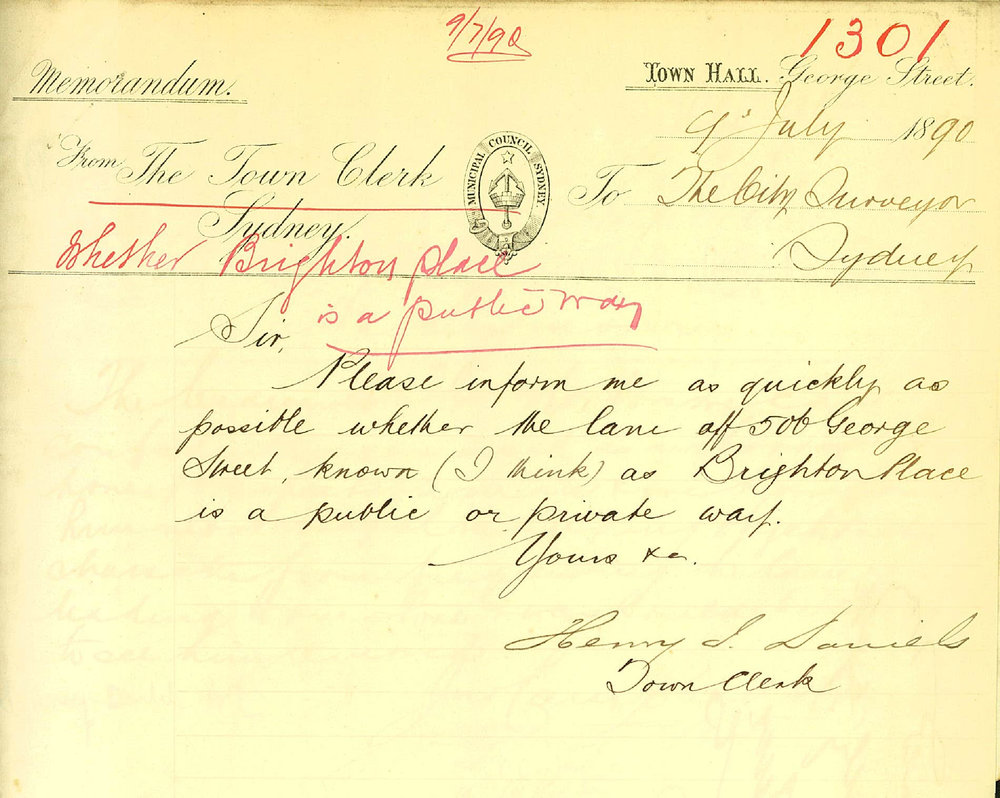 9/7/90
1301
Memorandum.
TOWN HALL. George Street.
9th July 1890
From The Town Clerk
Sydney.
MUNICIPAL COUNCIL SYDNEY
To The City Surveyor
Sydney
Whether Brighton place
is a public way
Sir,
Please inform me as quickly as
possible whether the lane off 506 George
Street, known (I think) as Brighton Place
is a public or private way.
Yours &c.
Henry J. Daniels
Town Clerk